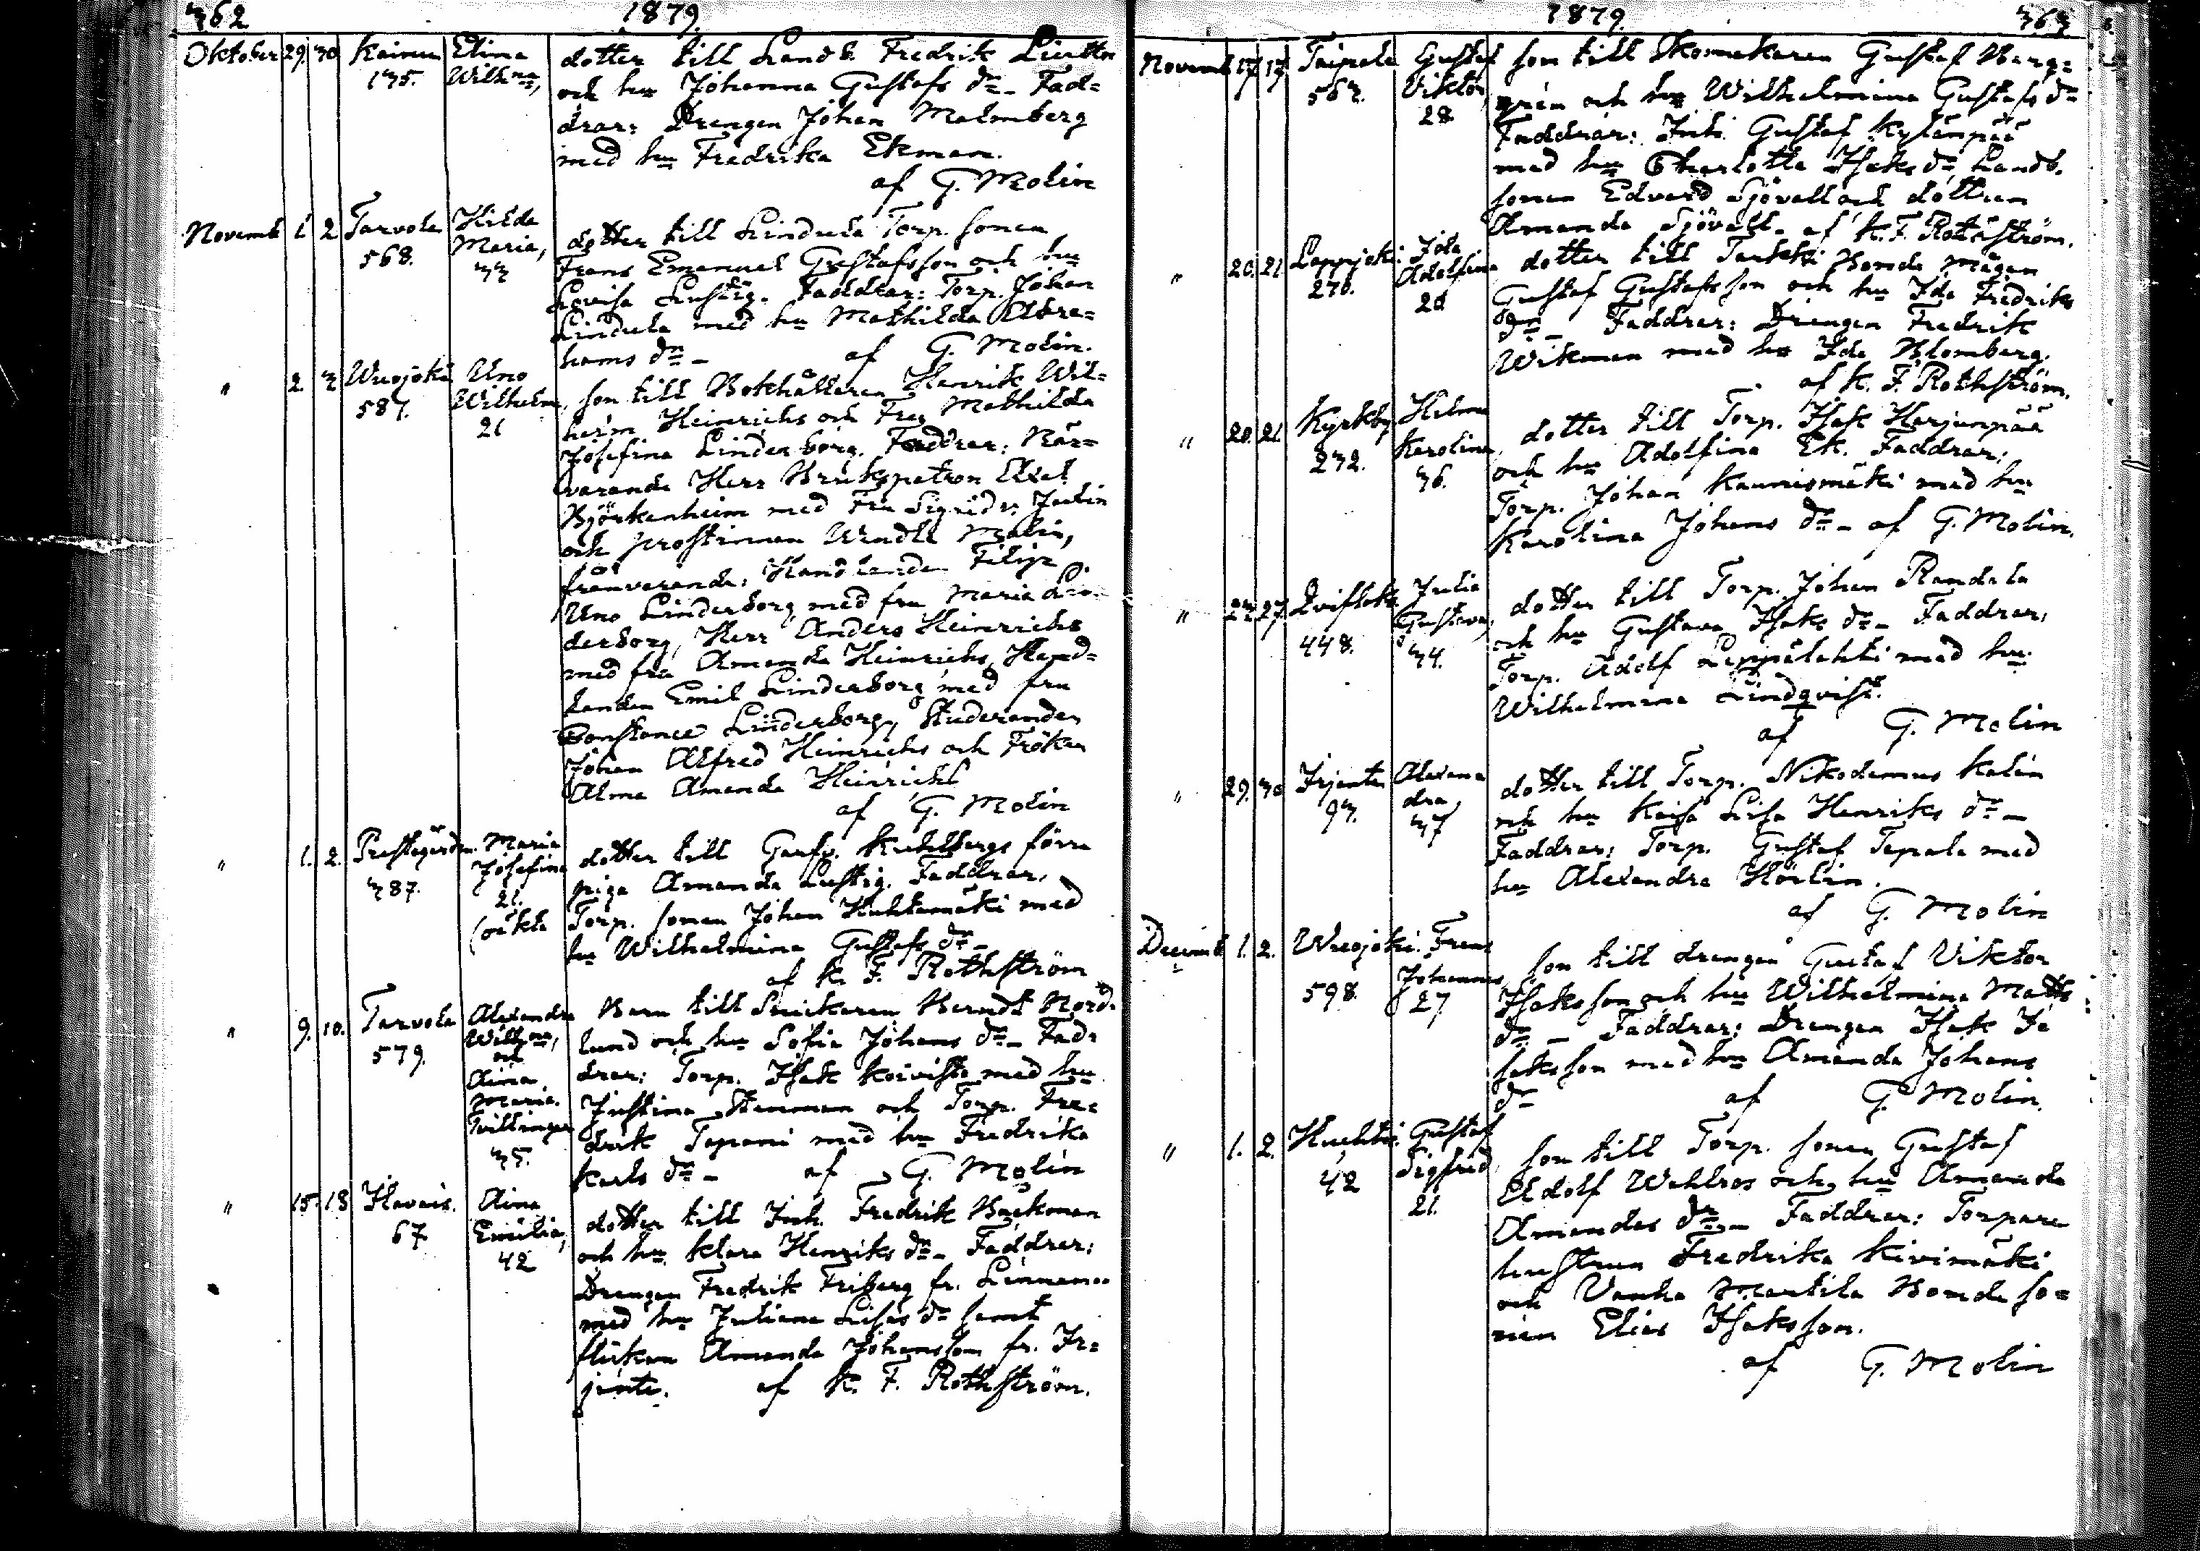 362 1879.
Oktober 29. 30 Kainu Elina dotter till Landb. Fredrik
135. Wilhna, och hu Johanna Gustafs dr_ Fad=
drar: Drengen Johan Malmberg
med hu Fredrika Ekman.
af G. Molin
Novemb 1 2 Tarvola Hilda dotter till Lindula Torp. sonen
568. Maria, Frans Emanuel Gustafsson och hu
33 Lovisa Lustig. Faddrar: Torp. Johan
Lindula med hu Mathilda Abra=
hams dr _ af G. Molin.
" 2. 3 Wuojoki Uno son till Bokhållaren Henrik Wil=
587. Wilhelm, helm Heinrichs och Fru Mathilda
21 Josefina Linderborg. Faddrar: När=
varande Herr Brukspatron Axel
Björkenheim med Fru Sigrid v. Julin
och prostinnan Wendla Molin,
frånvarande: Handlanden Filip
Uno Linderborg med fru Maria Lin=
derborg, Herr Anders Heinrichs
med fru Amanda Heinrichs, Hand=
landen Emil Linderborg med fru
Constance Linderborg, Studeranden
Johan Alfred Heinrichs och Fröken
Alma Amanda Heinrichs
af G. Molin
" 1. 2. Prestegården. Maria dotter till Kuhlbergs förra
387. Josefina piga Amanda Lustig. Faddrar,
21. Torp. sonen Johan Huhtamäki med
(oäkta hu Wilhelmina Gustafs dr_
af K. F. Rothström
" 9. 10. Tarvola Alexandra Barn till Snickaren Berndt Nord=
579. Wilhna, lund och hu Sofia Johans dr_ Fad=
och drar: Torp. Isak Koivisto med hu
Aina Justina Stenman och Torp. Fre=
Maria. drik Tapani med hu Fredrika
Tvillingar Karls dr _ af G. Molin
35.
" 15. 18 Havais. Aina dotter till Inh. Fredrik Backman
67 Emilia, och hu Klara Henriks dr_ Faddrar:
42 Drengen Fredrik Friberg fr.
med hu Juliana dr samt
flickan Amanda Johansson fr. Ir=
jante. af K. F. Rothström.
1879. 363
Novemb 17 17 Taipale Gustaf son till Skomakaren Gustaf Berg=
563. Viktor gren och hu Wilhelmina Gustafs dr
28 Faddrar: Inh. Gustaf Kylänpää
med hu Charlotta Isaks dr Landb.
sonen Edvard Sjövall och dottren
Amanda Sjövall. af K. F. Rothström.
" 20. 21 Lappjoki. Ida dotter till Bonde mågen
270. Adolfina Gustaf Gustafsson och hu Ida Fredriks
28 dr _ Faddrar: Drengen Fredrik
Wikman med hu Ida Blomberg.
af K. F. Rothström.
" 20. 21 Kyrkby Hilma dotter till Torp. Isak Harjunpää
272. Karolina och hu Adolfina Ek. Faddrar:
36. Torp. Johan Kaunismäki med hu
Karolina Johans dr _ af G. Molin.
" 23. 27. Julia dotter till Torp. Johan Randala
448. Gustava, och hu Gustava Isaks dr_ Faddrar,
34. Torp. Adolf Leppälahti med hu
Wilhelmina Lindqvist.
af G. Molin
" 29. 30 Irjante Alexan dotter till Torp. Nikodemus Kalin
93. dra, och hu Kaisa Lisa Henriks dr _
37 Faddrar: Torp. Gustaf Tapala med
hu Alexandra Hörlin.
af G. Molin
Decemb 1. 2. Wuojoki. Frans son till drengen Gustaf Viktor
598. Johannes Isaksson och hu Wilhelmina Matts
27 dr _ Faddrar: Drengen Isak Isa
saksson med hu Amanda Johans
dr af G. Molin.
" 1. 2. Huhta. Gustaf son till Torp. sonen Gustaf
42 Sigfrid, Adolf Wahlros och hu Amanda
21. Amandas dr_ Faddrar: Torpare
hustrun Fredrika Kivimäki
och Vanha Marttila Bonde so=
nen Elias Isaksson.
af G. Molin